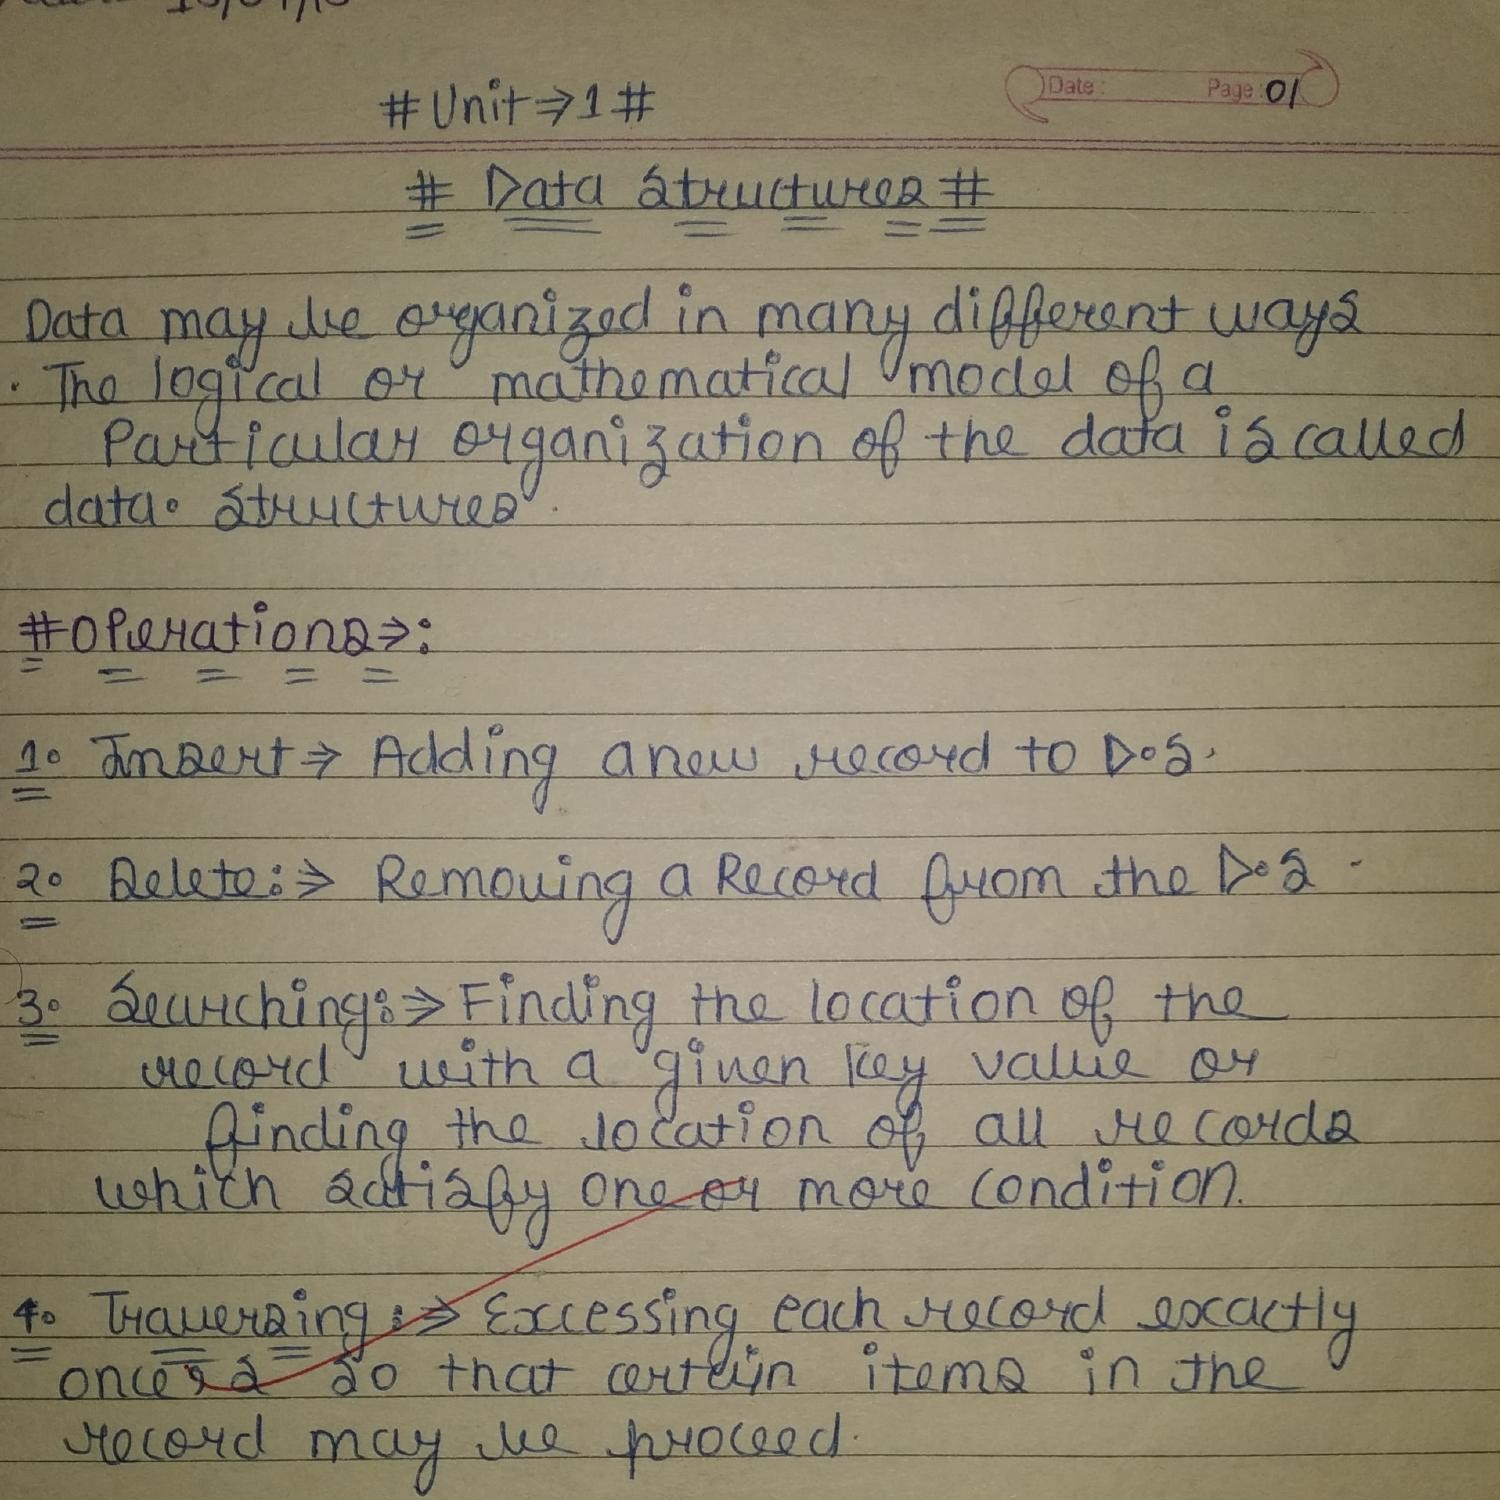 # Unit ⇒ 1 #
Date: Page: 01
# Data Structures #
Data may be organized in many different ways
. The logical or mathematical model of a
Particular organization of the data is called
data. Structures.
# Operations ⇒:
1. Insert ⇒ Adding a new record to D.S.
2. Delete:⇒ Removing a Record from the D.S.
3. Searching:⇒ Finding the location of the
record with a given key value or
finding the location of all records
which satisfy one or more condition.
4. Traversing:⇒ Excessing each record exactly
once so that certain items in the
record may be proceed.